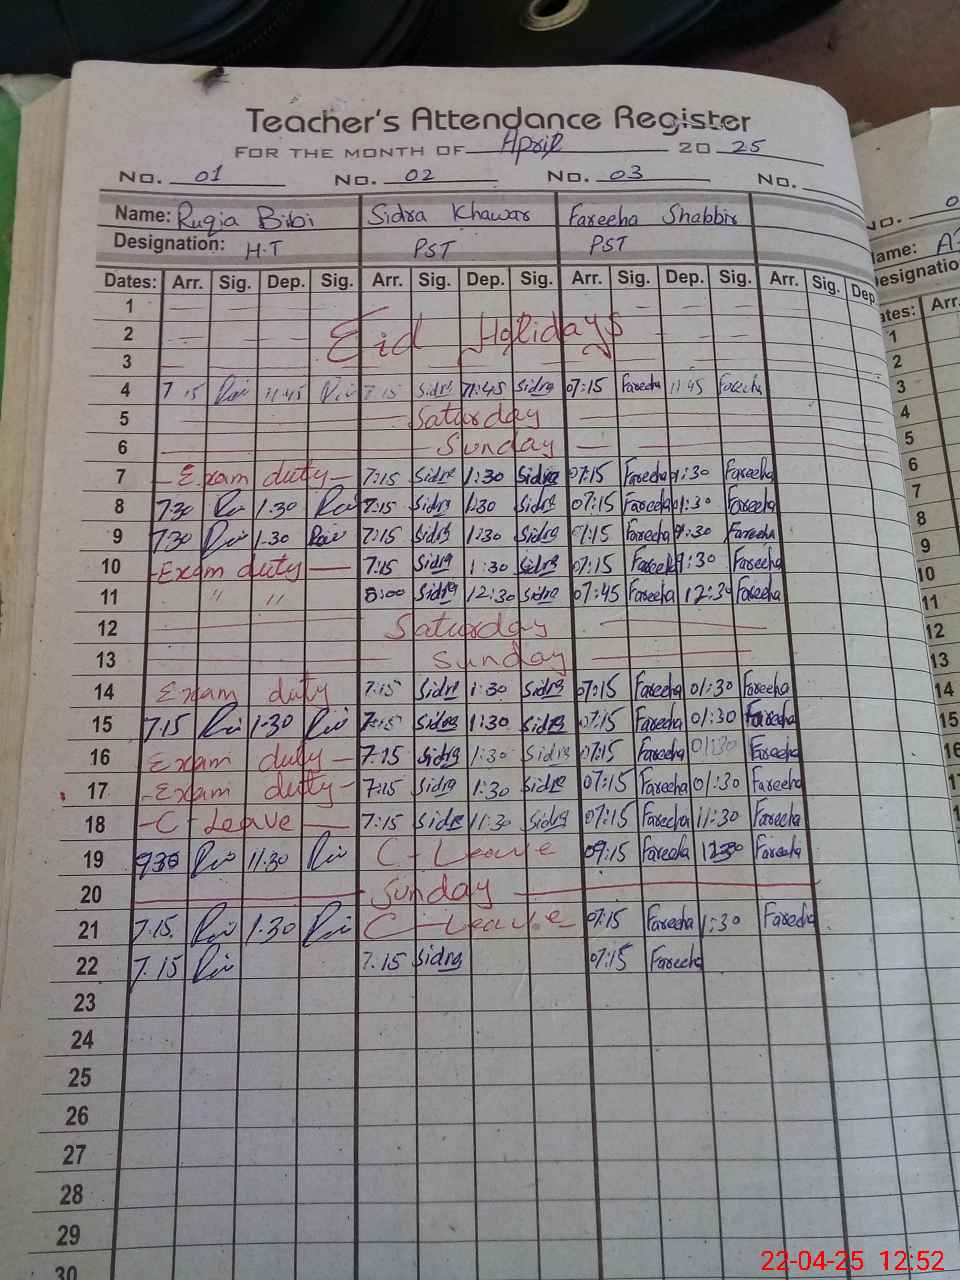 Teacher's Attendance Register
FOR THE MONTH OF April 20 25
No. 01 No. 02 No. 03 No.
Name: Ruqia Bibi Sidra Khawar Fareeha Shabbir
Designation: H.T PST PST
Dates: Arr. Sig. Dep. Sig. Arr. Sig. Dep. Sig. Arr. Sig. Dep. Sig. Arr. Sig. Dep.
1
2 Eid Holidays
3
4 7 15 11:45 7:15 Sidra 11:45 Sidra 07:15 Fareeha 11 45 Fareeha
5 Saturday
6 Sunday
7 Exam duty 7:15 Sidra 1:30 Sidra 07:15 Fareeha 1:30 Fareeha
8 7.30 1.30 7:15 Sidra 1:30 Sidra 07:15 Fareeha 01:30 Fareeha
9 7.30 1.30 7:15 Sidra 1:30 Sidra 07:15 Fareeha 1:30 Fareeha
10 Exam duty 7:15 Sidra 1:30 Sidra 07:15 Fareeha 1:30 Fareeha
11 " " 8:00 Sidra 12:30 Sidra 07:45 Fareeha 12:30 Fareeha
12 Saturday
13 Sunday
14 Exam duty 7:15 Sidra 1:30 Sidra 07:15 Fareeha 01:30 Fareeha
15 7.15 1.30 7:15 Sidra 1:30 Sidra 07:15 Fareeha 01:30 Fareeha
16 Exam duty 7:15 Sidra 1:30 Sidra 07:15 Fareeha 01:30 Fareeha
17 Exam duty 7:15 Sidra 1:30 Sidra 07:15 Fareeha 01:30 Fareeha
18 C-Leave 7:15 Sidra 11:30 Sidra 07:15 Fareeha 11:30 Fareeha
19 930 11.30 C-Leave 09:15 Fareeha 1230 Fareeha
20 Sunday
21 7.15. 1.30 C-Leave 07:15 Fareeha 1:30 Fareeha
22 7.15 7:15 Sidra 07:15 Fareeha
23
24
25
26
27
28
29
30
No. 0
ame:
esignatio
ates: Arr.
1
2
3
4
5
6
7
8
9
10
11
12
13
14
15
16
22-04-25 12:52